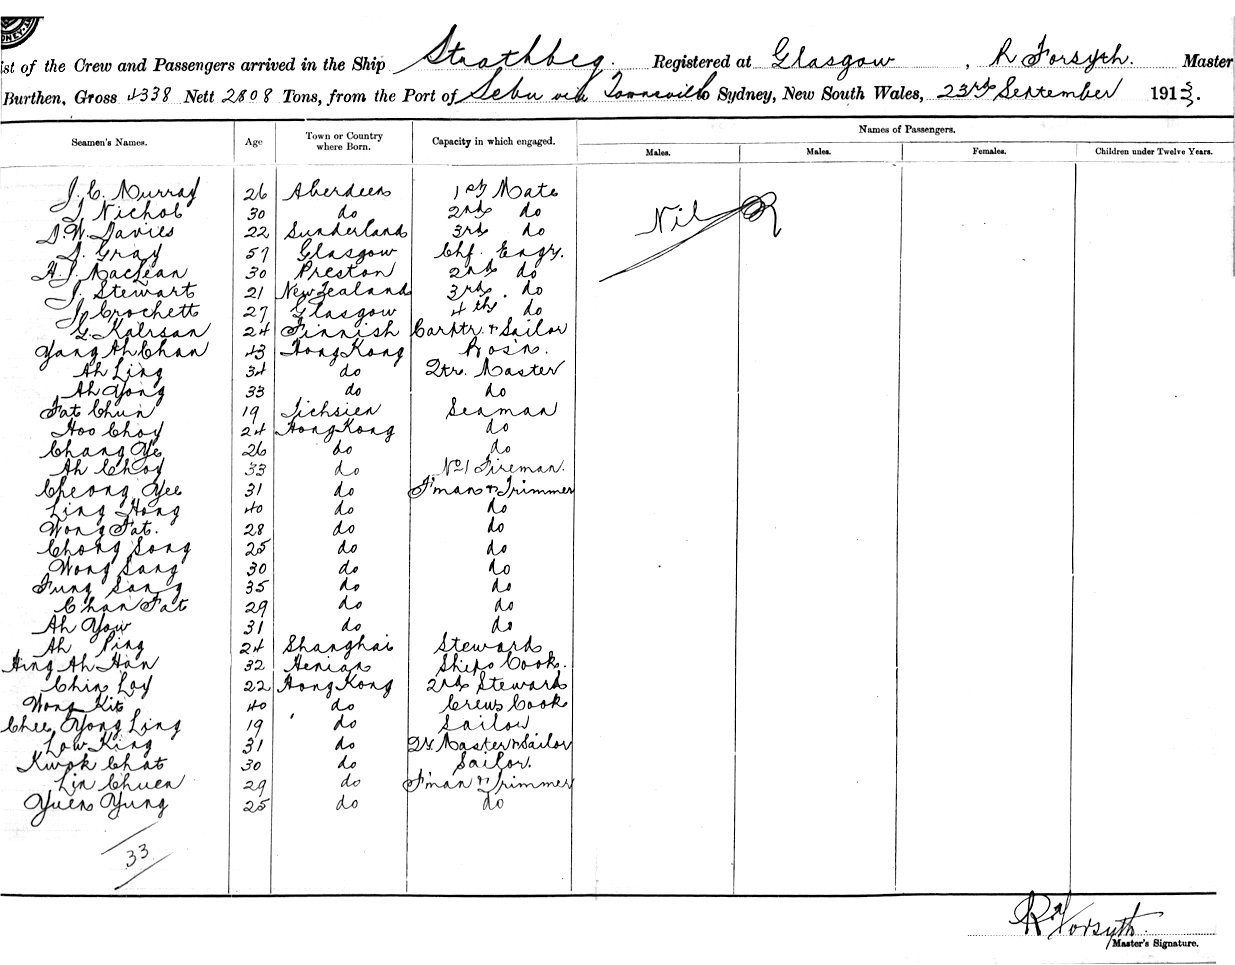 DNEY.
ist of the Crew and Passengers arrived in the Ship Strathbeg. Registered at Glasgow, R Forsyth. Master
Burthen, Gross 4338 Nett 2808 Tons, from the Port of Sebu via Townsville Sydney, New South Wales, 23rd September 1913.
Seamen's Names. Age Town or Country where Born. Capacity in which engaged. Names of Passengers.
Males. Males. Females. Children under Twelve Years.
J. C. Murray 26 Aberdeen 1st Mate
J Nichol 30 do 2nd do
D. W. Davies 22 Sunderland 3rd do
J. Gray 57 Glasgow Chf. Engr.
A. J. MacLean 30 Preston 2nd do
J. Stewart 21 New Zealand 3rd. do
J Crochett 27 Glasgow 4th do
G. Kalrsan 24 Finnish Carptr. & Sailor
Yang Ah Chan 43 Hong Kong Bos'n.
Ah Ling 34 do Qtr. Master
Ah Yong 33 do do
Fat Chun 19 Tichsien Seaman
Hoo Choy 24 Hong Kong do
Chang Ye 26 do do
Ah Choy 33 do No1 Fireman.
Cheong Yee 31 do F'man & Trimmer
Ling Hong 40 do do
Wong Fat. 28 do do
Chong Song 25 do do
Wong Sang 30 do do
Fung Sang 35 do do
Chan Fat 29 do do
Ah Yow 31 do do
Ah Ping 24 Shanghai Steward
Hing Ah Han 32 Henian Ships Cook.
Chin Loy 22 Hong Kong 2nd Steward
Wong Kit 40 do Crews Cook
Chee Yong Ling 19 do Sailor
Low King 31 do Qr Master & Sailor
Kwok Chat 30 do Sailor.
Lin Chuen 29 do F'man & Trimmer
Yuen Yung 25 do do
Nil
33
R Forsyth.
Master's Signature.